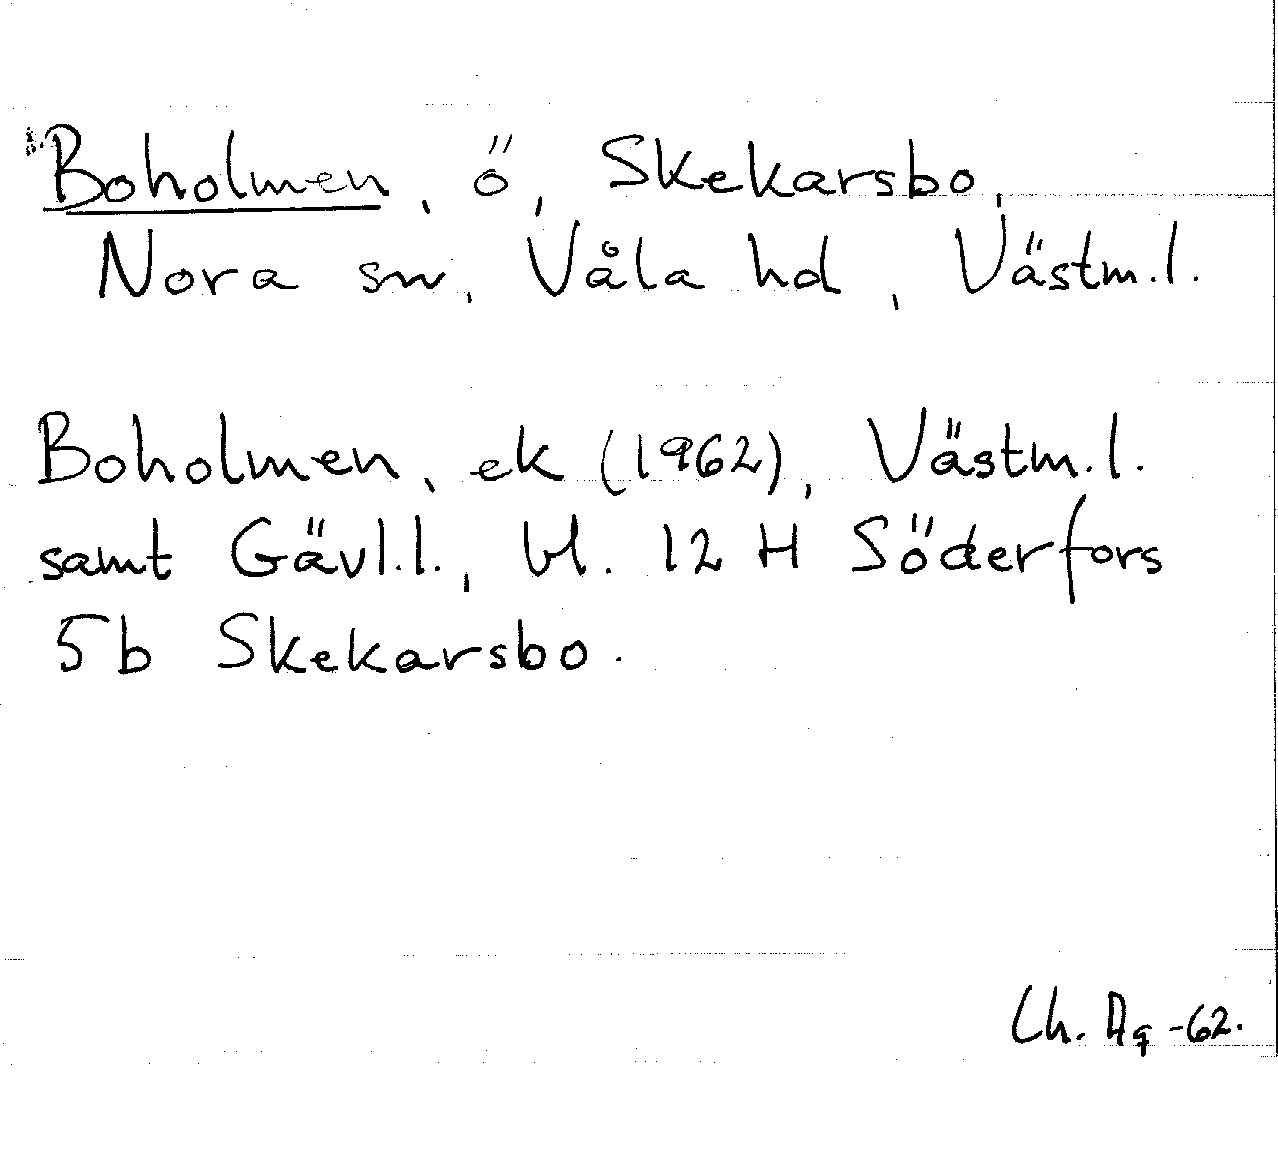 Boholmen, ö, Skekarsbo,
Nora sn, Våla hd, Västm.l.
Boholmen, ek (1962), Västm.l.
samt Gävl.l., bl. 12 H Söderfors
5b Skekarsbo.
Ch. Ag -62.